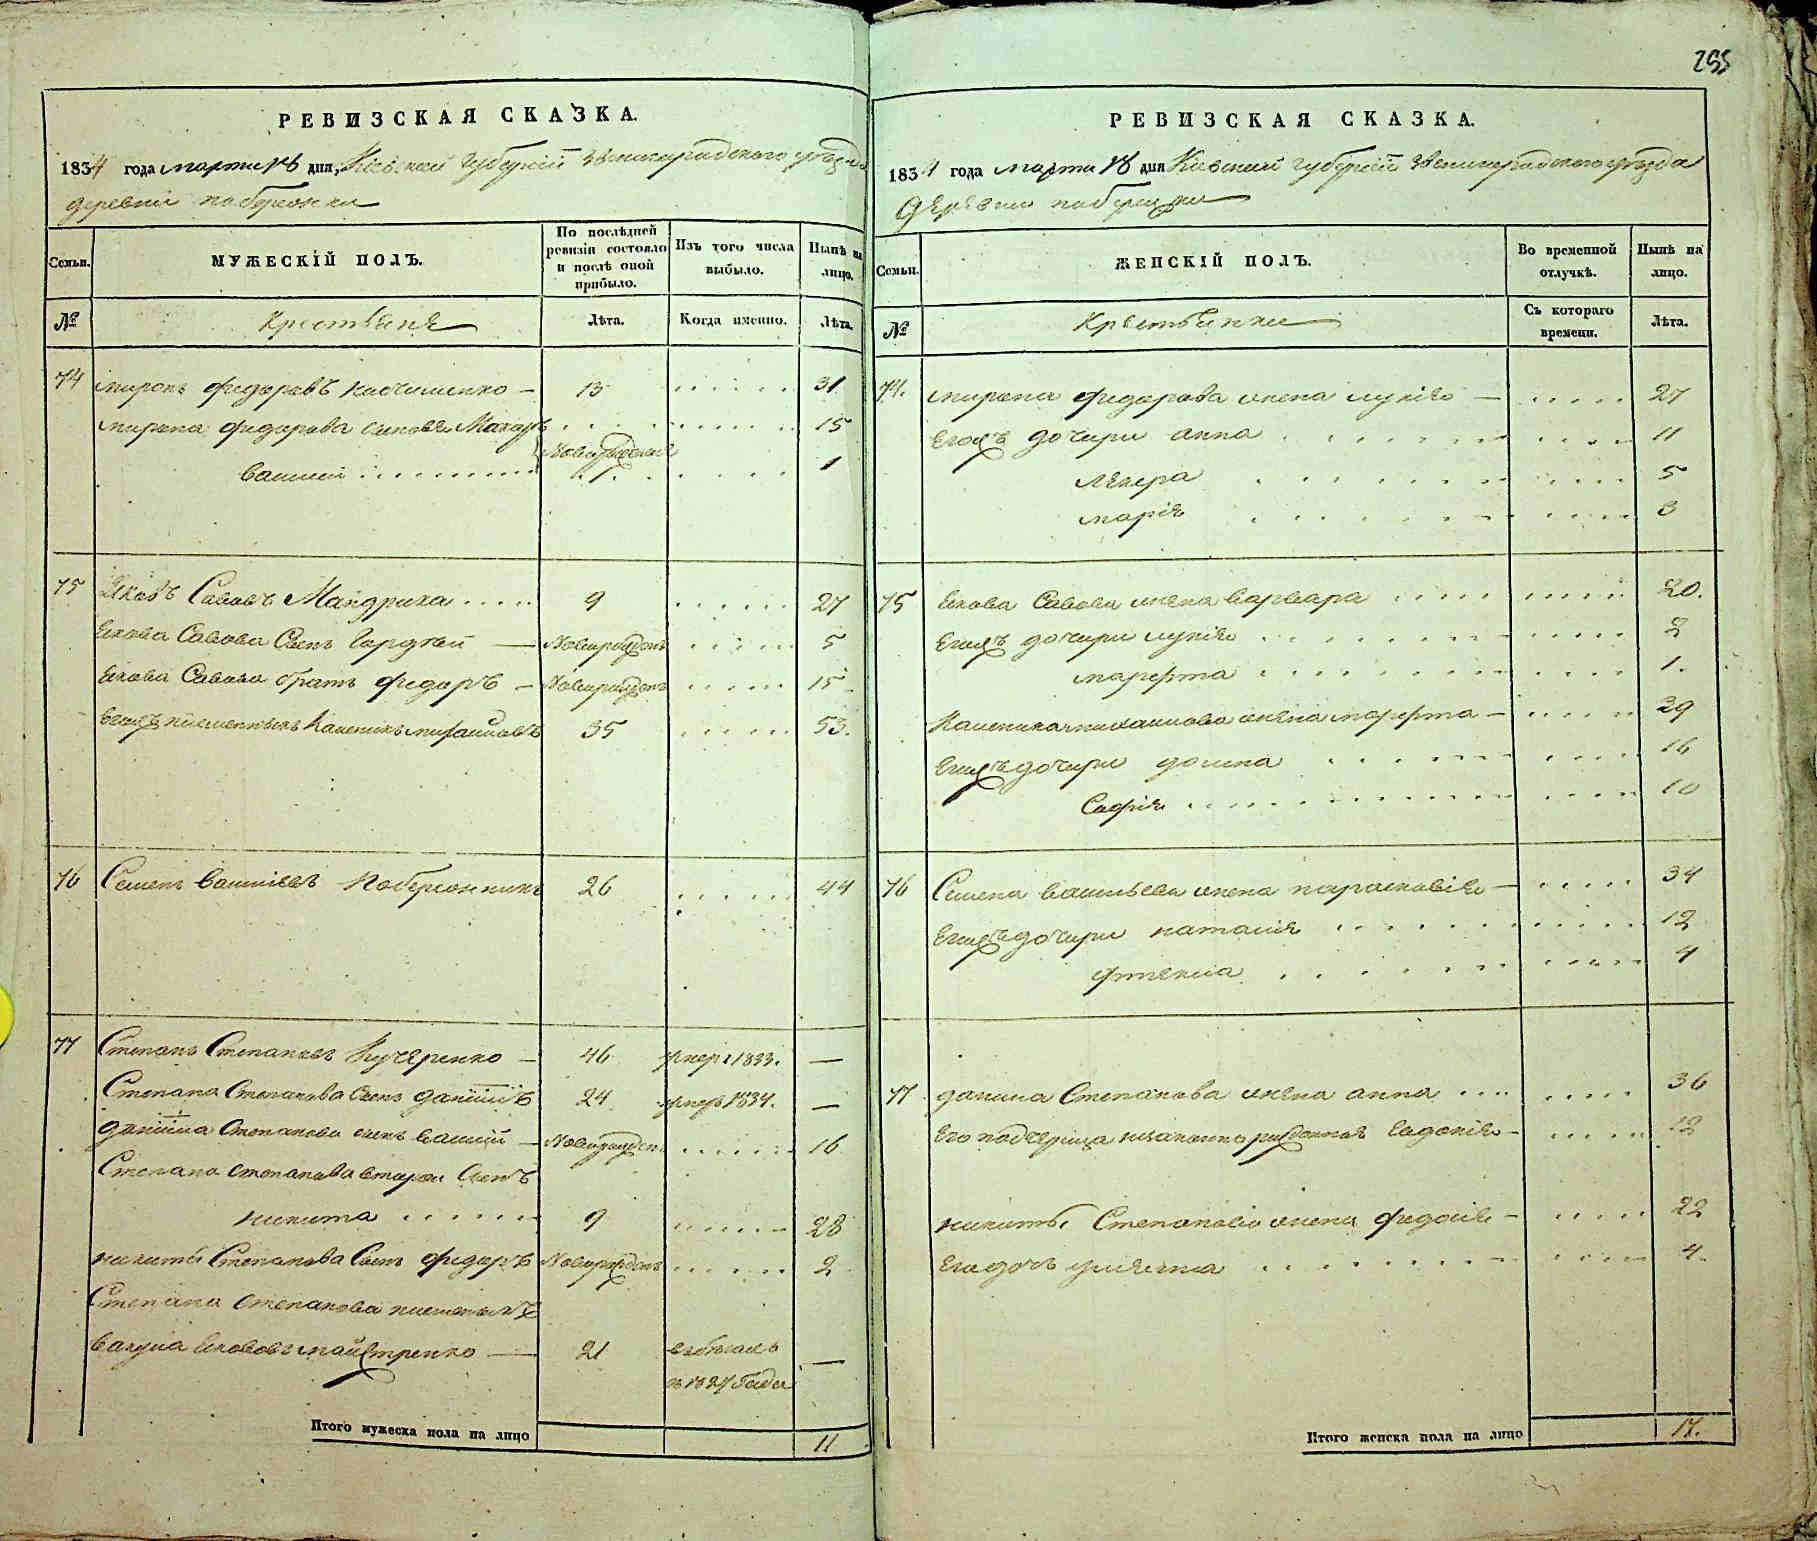 255
РЕВИЗСКАЯ СКАЗКА.
1834 года марта 18 дня, Кіевской губерніи Звенигородского уѣзда
деревни Побережки
Семьи. МУЖЕСКІЙ ПОЛЪ. По послѣдней ревизіи состояло и послѣ оной прибыло. Изъ того числа выбыло. Нынѣ на лицо.
№ Крестьяне Лѣта. Когда именно. Лѣта.
74 миронъ федоровъ 13 31
мирона федорова сыновья Макаръ 15
Новорожденные
василий 1 1
75 Яковъ Савовъ Мандрика 9 27
Якова Савова Сынъ Гордѣй — Новорожденъ 5
Якова Савова братъ федоръ — Новорожденъ 15
Егожъ племенникъ 35 53.
76 Семенъ василіевъ Побережникъ 26 44
77 Степанъ Степановъ Кучеренко — 46 умеръ 1833. —
Степана Степанова Сынъ данііилъ 24 умеръ 1834. —
даніила Степанова сынъ василій — Новорожден 16
Степана степанова вторы Сынъ
никита 9 28
никиты Степанова Сынъ федоръ Новорожденъ 2
Степана степанова племеныкъ
вакула Яковов майстренко — 21 —
в 1827 года
Итого мужеска пола на лицо 11
РЕВИЗСКАЯ СКАЗКА.
1834 года марта 18 дня Кіевской губерніи Звенигородского уѣзда
Деревни побережки
Семьи. ЖЕНСКІЙ ПОЛЪ. Во временной отлучкѣ. Нынѣ на лицо.
№ Крестьянки Съ котораго времени. Лѣта.
74. мирона федорова жена лукія — 27
Егожъ дочери анна 11
3
марія 5
75 Якова Савова жена варвара 20.
Егожъ дочери лукія 2
марфта 1.
жена марфта — 39
Егожъ дочери 16
Софія 10
76 Семена васильева жена параскевія — 34
Егожъ дочери наталия 12
4
77 данила Степанова жена анна 36
Его падчерица незаконно рожденная Евдокія — 12
никиты Степанова жена федосія — 22
Его дочь 4.
Итого женска пола на лицо 17.